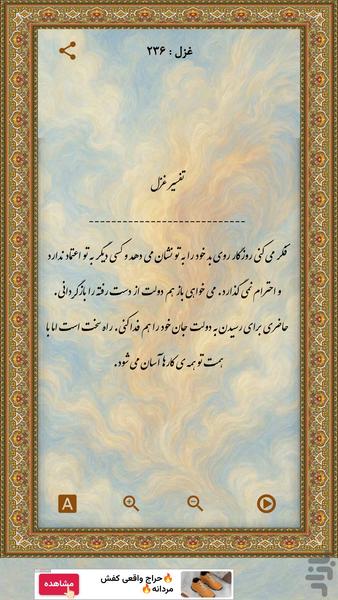 غزل : ۲۳۶
تفسیر غزل
فکر می کنی روزگار روی بد خود را به تو نشان می دهد و کسی دیگر به تو اعتماد ندارد
و احترام نمی گذارد. می خواهی باز هم دولت از دست رفته را بازگردانی.
حاضری برای رسیدن به دولت جان خود را هم فدا کنی. راه سخت است اما با
همت تو همه ی کارها آسان می شود.
A
🔥حراج واقعی کفش
مردانه🔥
مشاهده
بازار